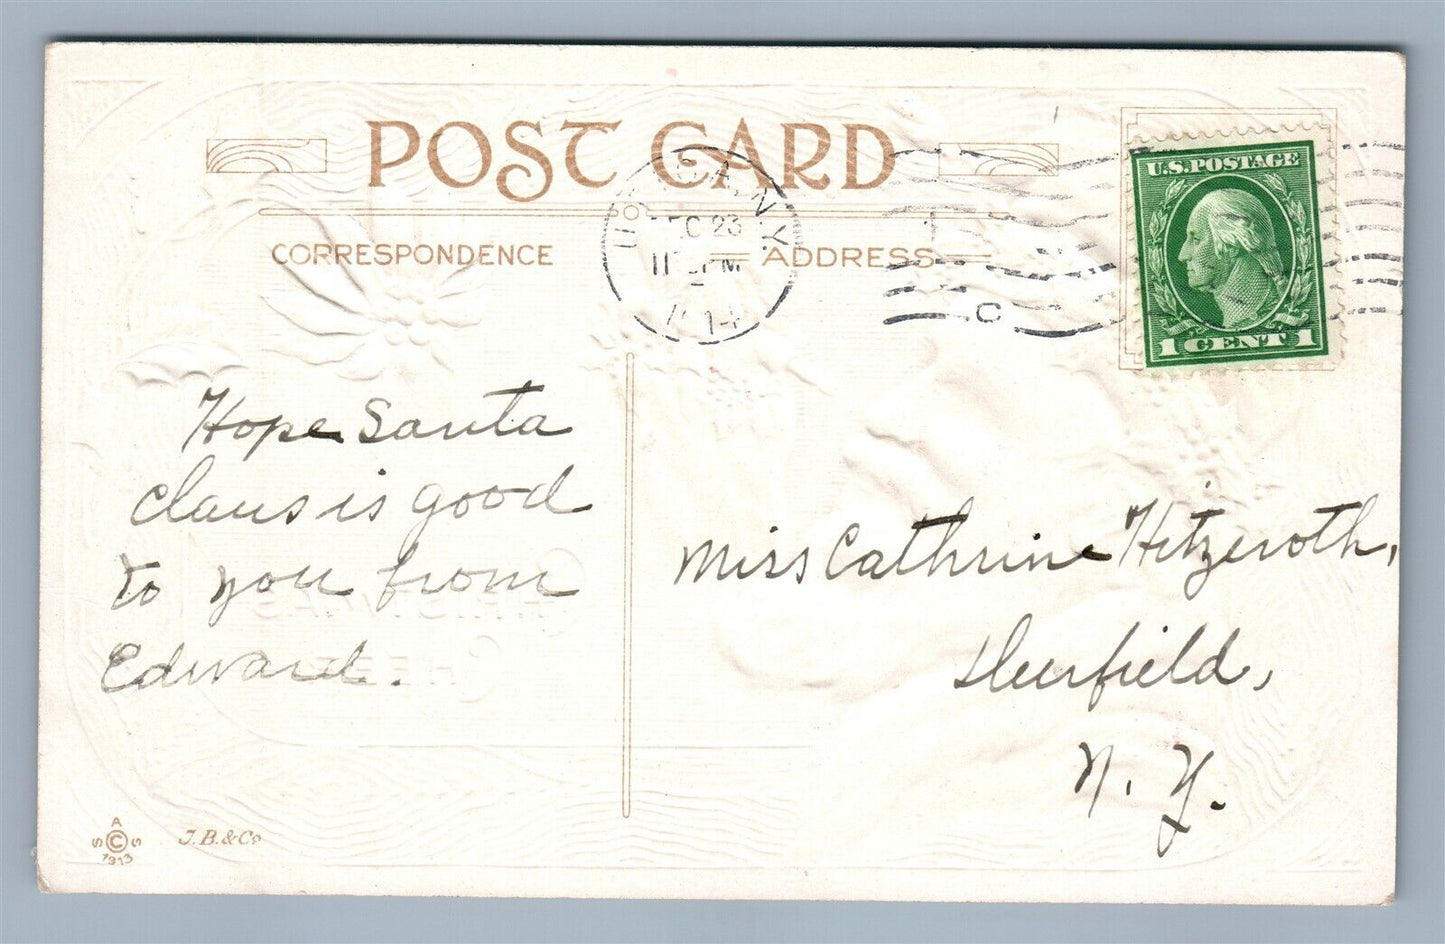 POST CARD
U.S. POSTAGE
1 CENT 1
N.Y.
DEC 23
PM
1914
C
CORRESPONDENCE
ADDRESS
Hope Santa
claus is good
to you from
Edward.
Miss Cathrine Hitzeroth,
Deerfield,
N. Y.
A
S © S
1913
J.B. & Co